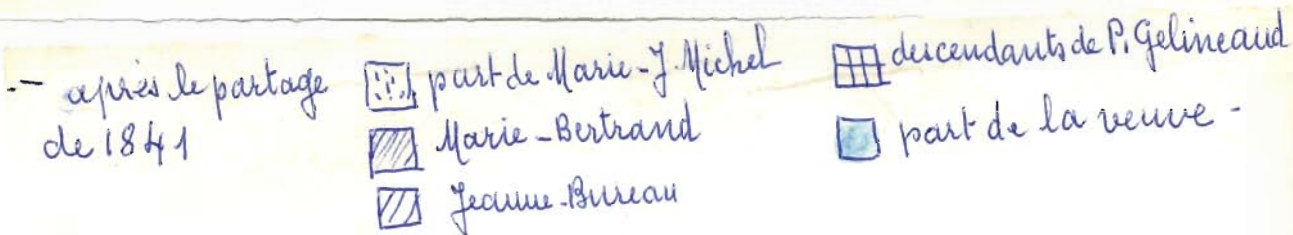 .- après le partage
de 1841
part de Marie-J. Michel
Marie-Bertrand
Jeanne-Bureau
descendants de P. Gelineaud
part de la veuve -